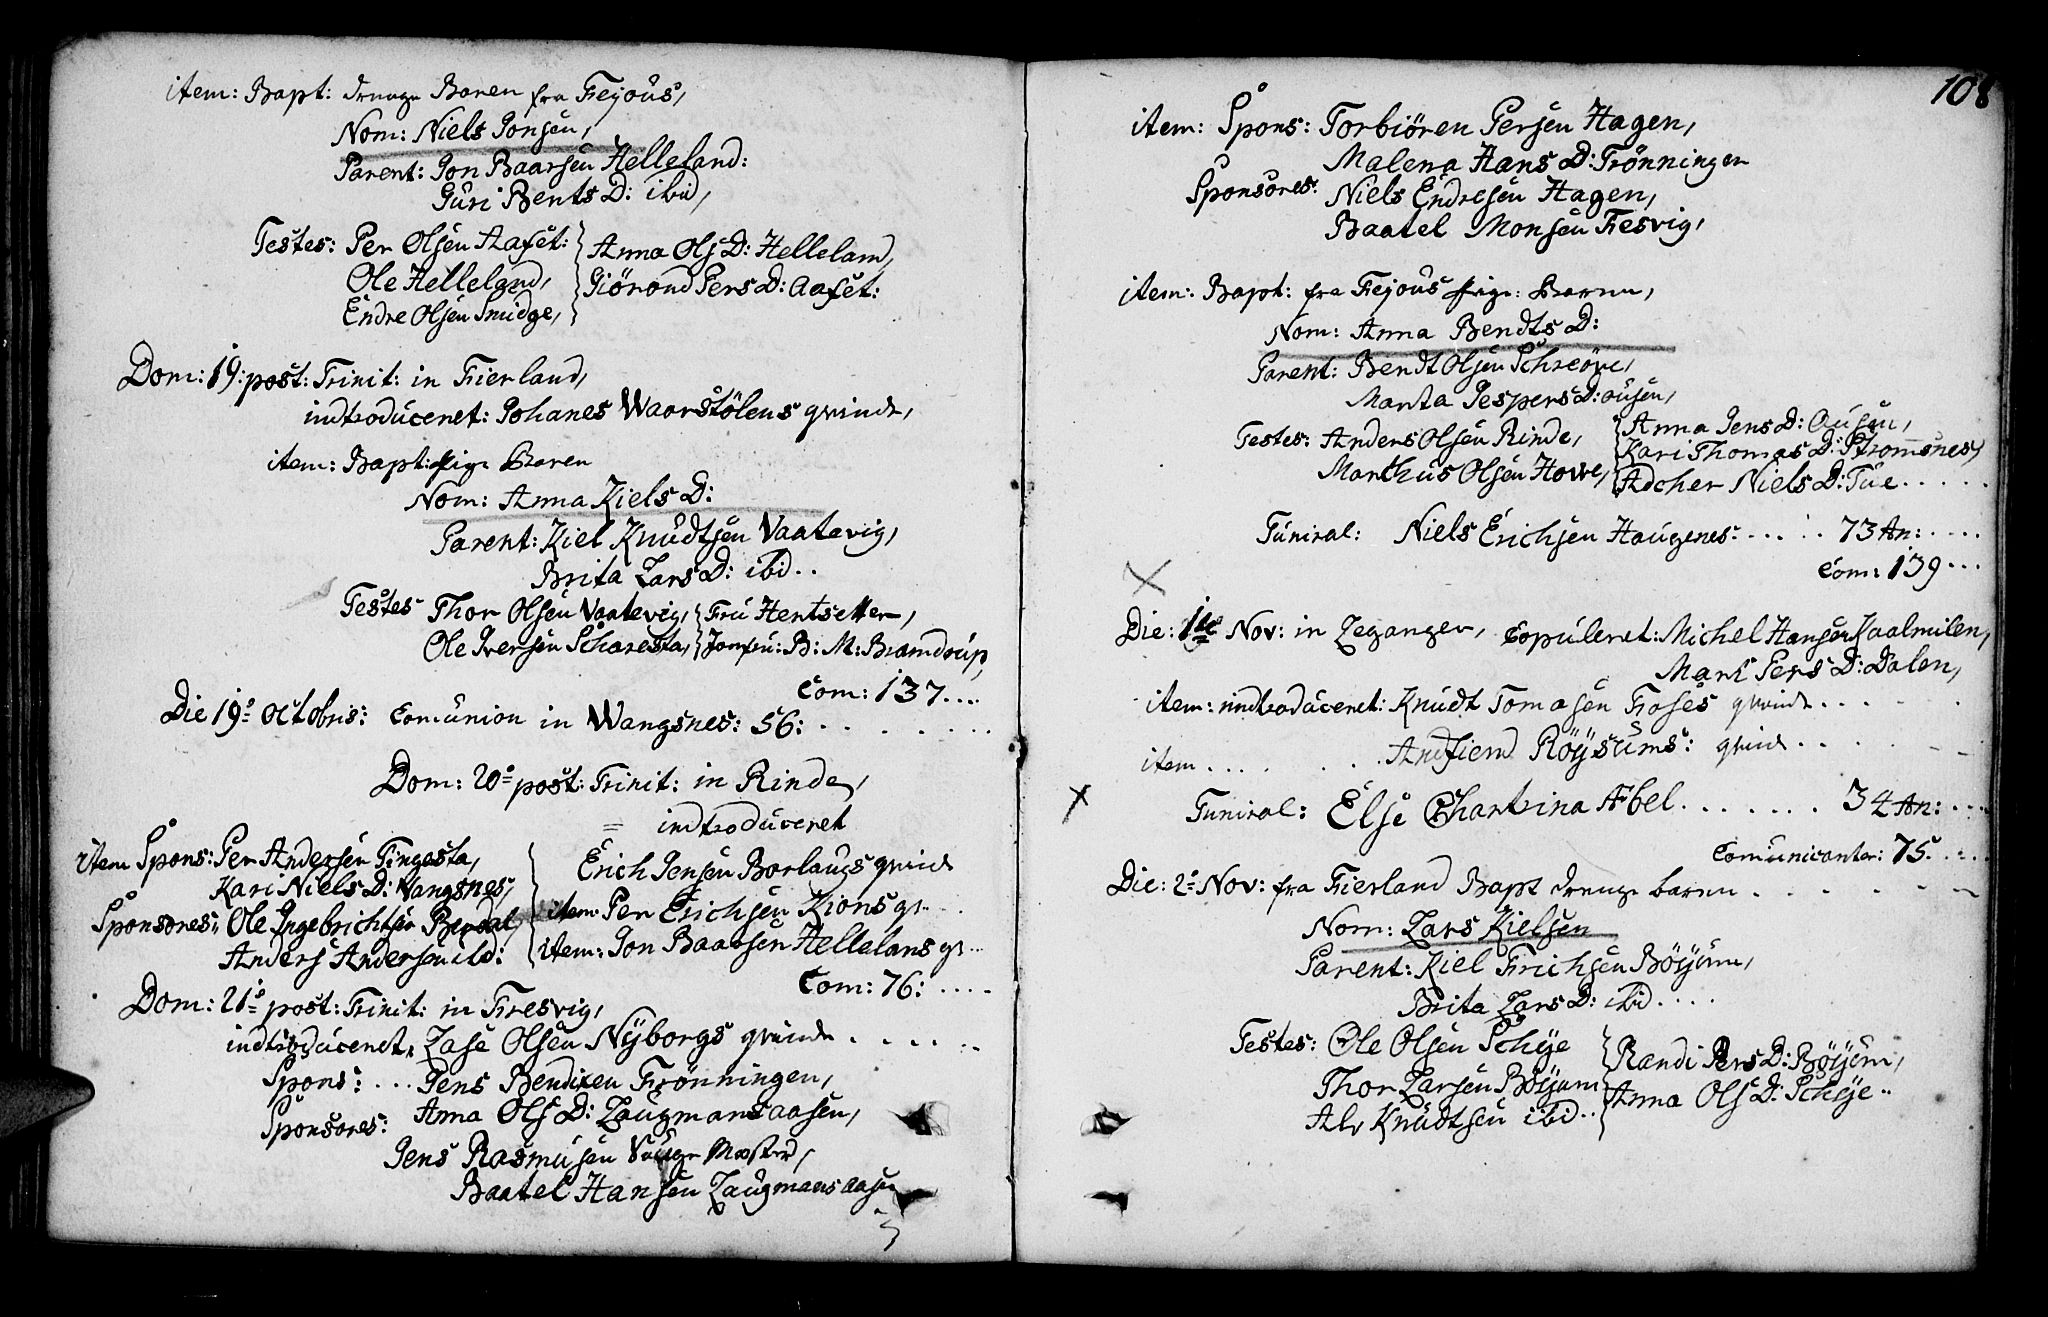 item: Bapt: drenge Baren fra Fejous,
Nom: Niels Jonsen,
Parent: Jon Baarsen Helleland:
Guri Bents D: ibid,
Testes: Per Olsen Aafet: Anna Ols D: Helleland,
Ole Helleland, Giörond Pers D: Aafet:
Endre Olsen Smidge,
Dom: 19: post: Trinit: in Fierland,
indtroduceret: Johanes Waarstölens qvinde,
item: Bapt: pige Baren
Nom: Anna Kiels D:
Parent: Kiel Knudtsen Vaatevig,
Brita Lars D: ibid..
Testes Thor Olsen Vaatevig, Fru Hentsetter,
Ole Iversen Scharesta, Jomfru: B: M: Bramdrup,
Com: 137....
Die 19: Octobris: Comunion in Wangsnes: 56:
Dom: 20 post: Trinit: in Rinde,
indtroduceret
item Spons: Per Andersen Tingesta, Erich Jensen Borlaugs qvinde
Kari Niels D: Vangsnes, item Per Erichsen Kions qv..
Sponsores: Ole Ingebrichtsen Berdal, item: Jon Baarsen Hellelans qv...
Anders Andersen ibid:
Com: 76:....
Dom: 21 post: Trinit: in Fresvig,
indtroduceret, Lase Olsen Nÿborgs qvinde......
Spons: ... Jens Bendixen Frönningen,
Anna Ols D: Laugmansaasen,
Sponsores:
Jens Rasmusen Mæster,
Baatel Hansen Laugmansaasen
108
item: Spons: Torbiören Persen Hagen,
Malena Hans D: Frönningen
Sponsores: Niels Endresen Hagen,
Baatel Monsen Fesvig,
item: Bapt: fra Fejous pige: Baren,
Nom: Anna Bendts D:
Parent: Bendt Olsen Schreöve,
Marta Jespers D: ousen,
Testes: Anders Olsen Rinde, Anna Jens D: Ousen,
Kari Thomas D: Strømsnes,
Marthus Olsen Howe, Adcher Niels D: Tue.....
Funiral: Niels Erichsen Haugenes..... 73 An:....
Com: 139...
Die: 1te Nov: in Leganger, Copuleret: Michel Hansen Kaalmilen,
Mari Pers D: Dalen,
item: indtroduceret: Knudt Tomasen Froses qvinde....
item.... ...Andfiend Röÿsums: qvinde..
Funiral: Else Chartrina Æbel....... 34 An:...
Comunicanter: 75....
Die: 2 Nov: fra Fierland Bapt drenge baren......
Nom: Lars Kielsen
Parent: Kiel Erichsen Böÿum,
Brita Lars D: ibid....
Testes: Ole Olsen Scheje Randi Pers D: Böÿum,
Thor Larsen Böÿum Anna Ols D: Scheje..
Alv Knudtsen ibid..